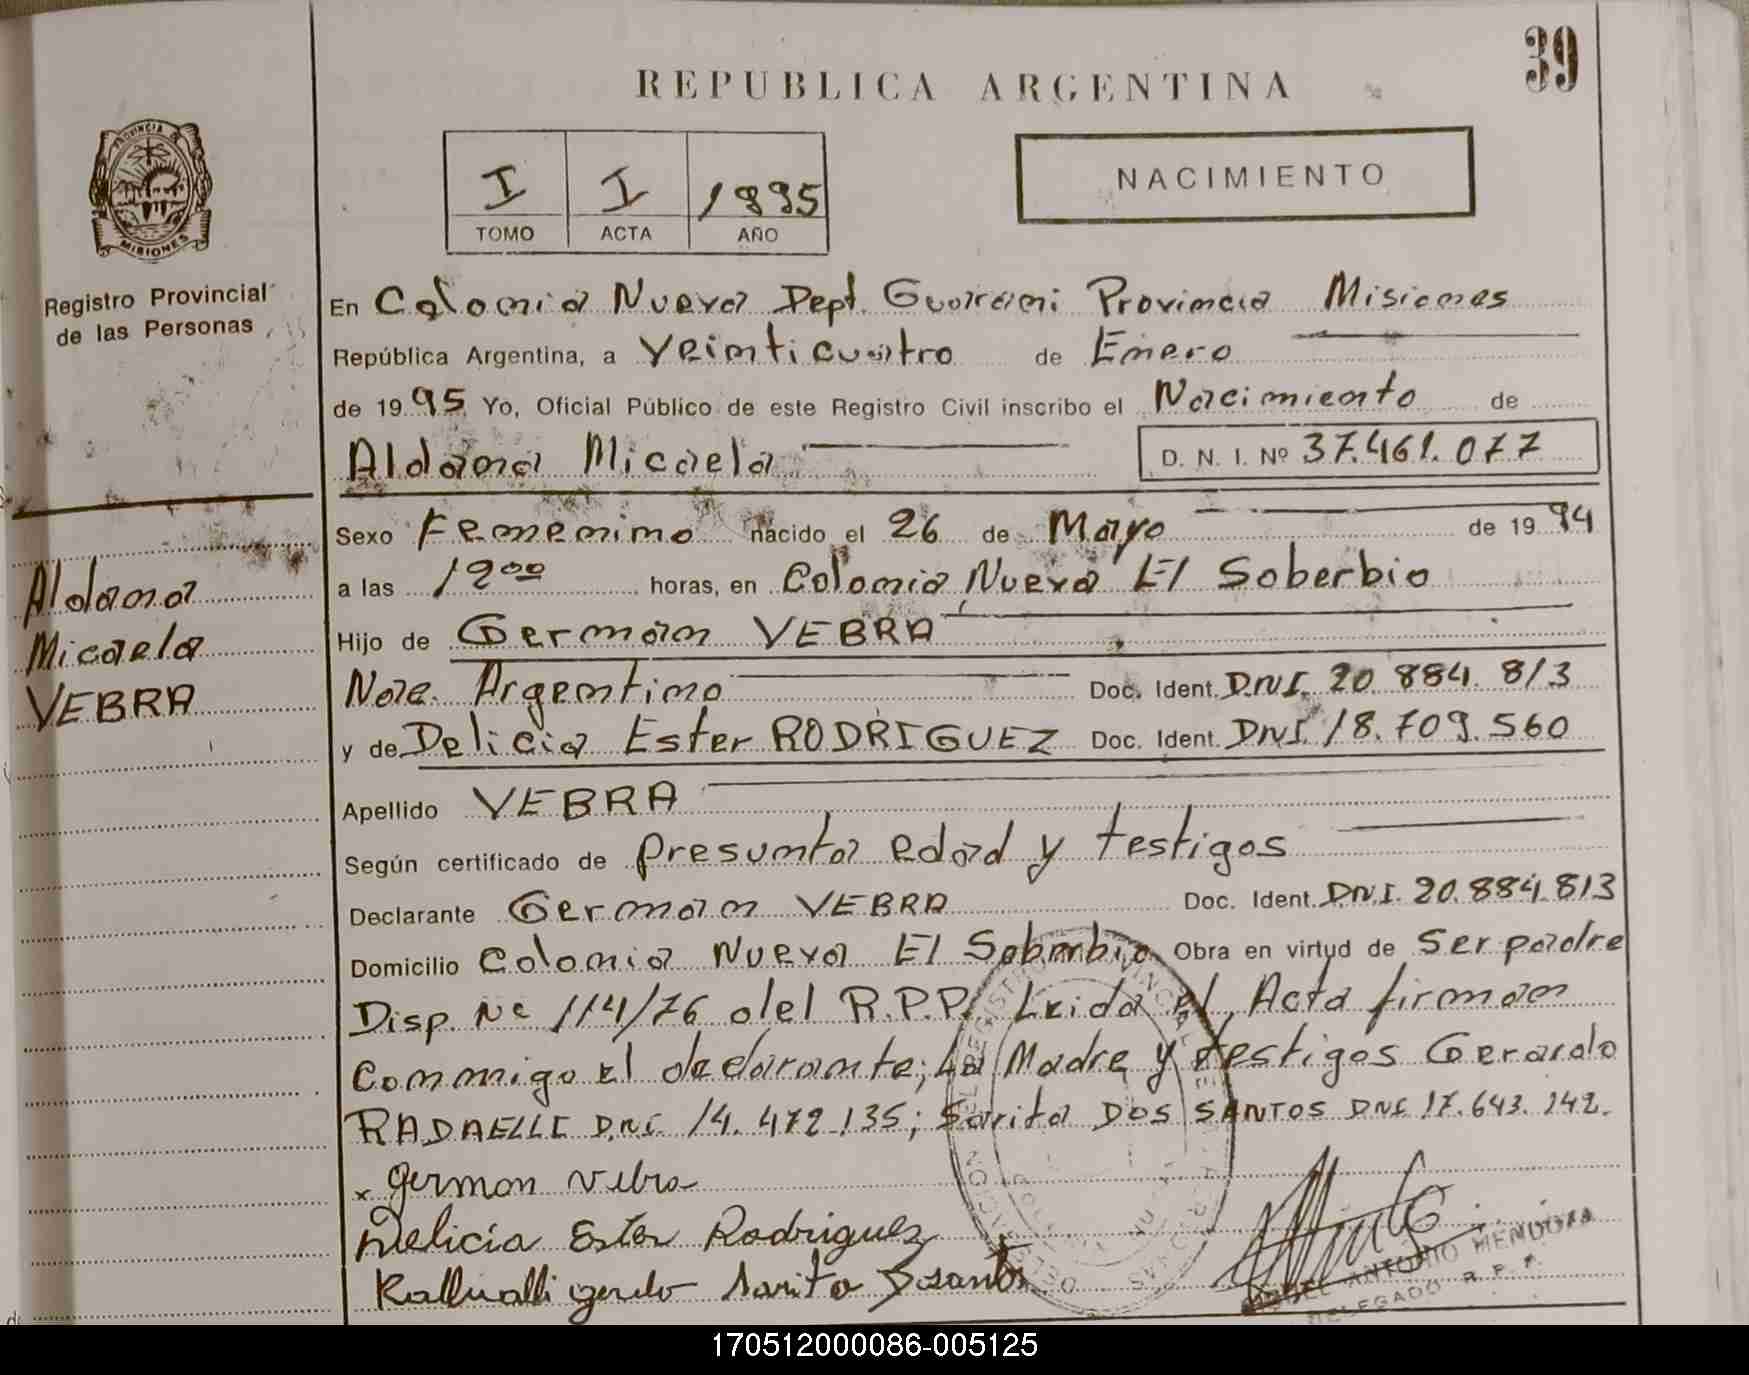 39
REPUBLICA ARGENTINA
PROVINCIA DE
MISIONES
Registro Provincial
de las Personas
I I 1995
TOMO ACTA AÑO
NACIMIENTO
En Colonia Nueva Dept. Guarani Provincia Misiones
República Argentina, a Veinticuatro de Enero
de 1995 Yo, Oficial Público de este Registro Civil inscribo el Nacimiento de
Aldana Micaela D. N. I. Nº 37.461.077
Sexo Femenino nacido el 26 de Mayo de 1994
a las 1200 horas, en Colonia Nueva El Soberbio
Hijo de German VEBRA
Nac. Argentino Doc. Ident. D.N.I. 20.884.813
y de Delicia Ester RODRIGUEZ Doc. Ident. DNI. 18.709.560
Apellido VEBRA
Según certificado de presunta edad y testigos
Declarante German VEBRA Doc. Ident. D.N.I. 20.884.813
Domicilio Colonia Nueva El Soberbio Obra en virtud de Ser padre
Disp. Nº 114/76 del R.P.P. Leida el Acta firman
conmigo el declarante; La Madre y testigos Gerardo
RADAELLI D.N.I. 14.472.135; Sarita DOS SANTOS DNI 17.643.142.
x German Vebra
Delicia Ester Rodriguez
Sarita
ANTONIO MENDOZA
DELEGADO R.P.P.
Aldana
Micaela
VEBRA
170512000086-005125